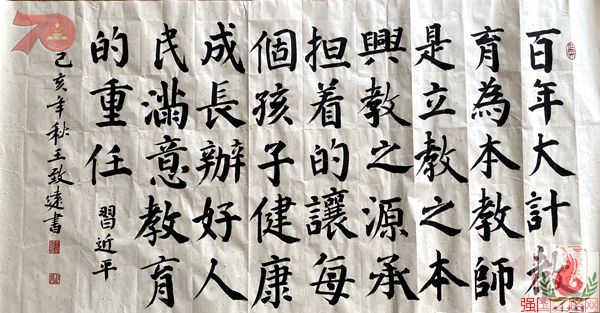 百年大計教
育為本教師
是立教之本
興教之源承
担着的讓每
個孩子健康
成長辦好人
民滿意教育
的重任
習近平
己亥年秋王致遠書
70
强国
网